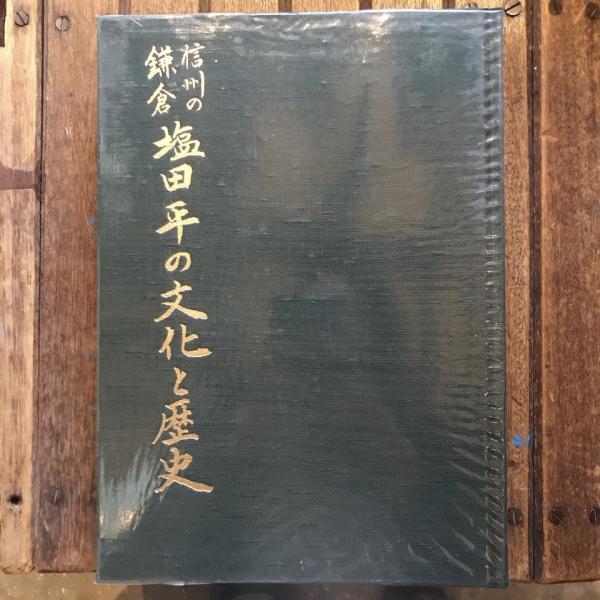 信州の
鎌倉
塩田平の文化と歴史